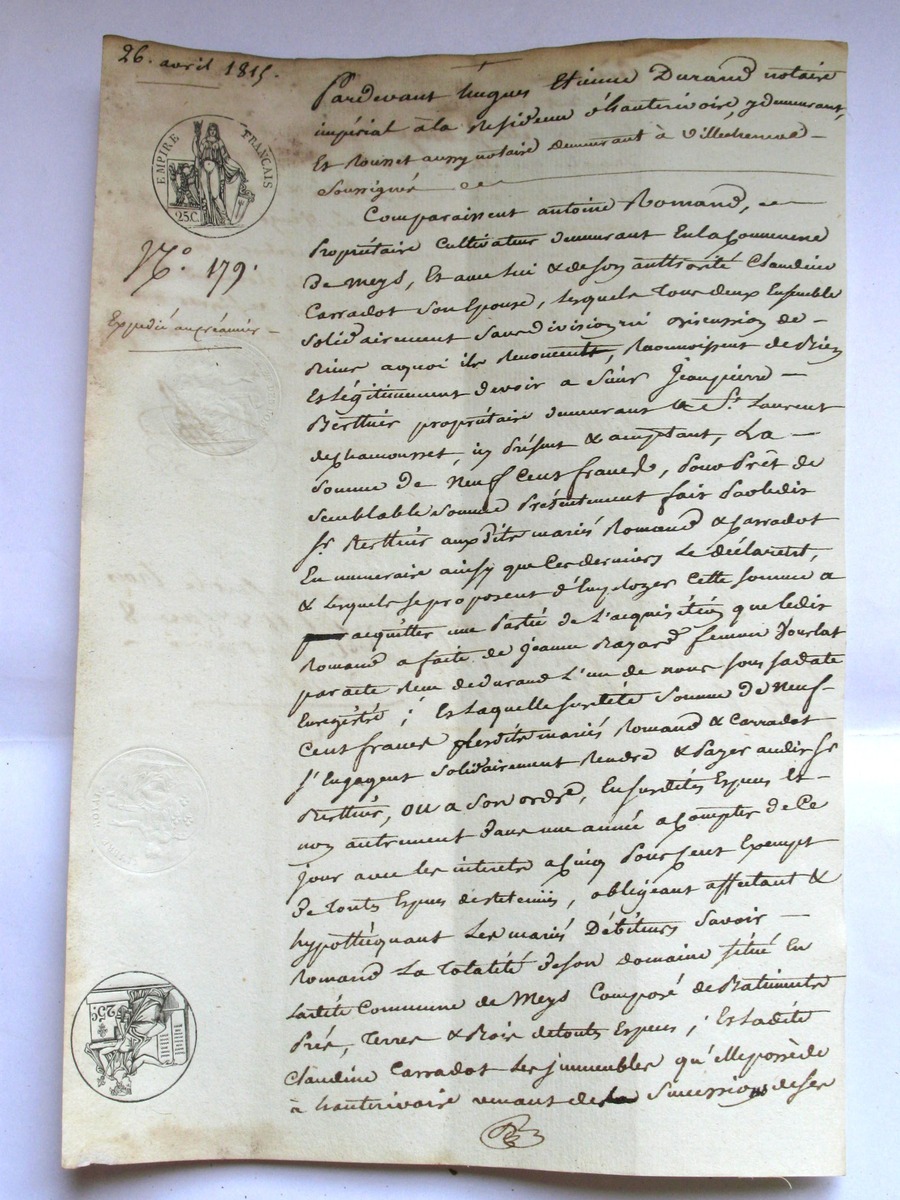 26. avril 1815.
EMPIRE FRANÇAIS
25.C.
N.º 179.
Expédié au créancier
25.C.
Pardevant hugues Etienne Durand notaire
impérial à la Residence d'hauterivoire, y demeurant,
Et Rousset aussy notaire demeurant à Villechenève
Soussignés
Comparaissent antoine Romand,
Propriétaire Cultivateur demeurant En la Commune
De Meys, Et avec lui & de son authorité Claudine
Carradot Son Epouse, lesquels tous deux Ensemble
Solidairement Sans division ni discussion de
biens aquoi ils Renoncent, Reconnoissent de bien
Et légitimement devoir a Sieur Jeanpierre
Berthier propriétaire demeurant à St. Laurent
de Chamousset, icy Présent & acceptant, La
Somme De Neuf Cent francs, Pour Prêt de
Semblable Somme Présentement fait Par ledit
Sr Berthier auxdits mariés Romand & Carradot
En numeraire ainsy que Ces derniers Le déclarent,
& lesquels se proposent d'Employer Cette Somme a
acquitter une Partie de L'acquisition que ledit
Romand a faite de jeanne Bazard femme
par acte Reçu de durand L'un de nous sous sa date
Enregistré ; Et Laquelle susdite Somme De Neuf
Cent francs lesdits mariés Romand & Carradot
s'Engagent solidairement Rendre & Payer audit Sr
Berthier, ou a Son ordre, En susdites Espèces Et
non autrement dans une année a Compter de Ce
jour avec les interets a Cinq Pour Cent Exempt
De touts Espèces de retenues, obligeant affectant &
hypothèquant Les mariés Débiteurs Savoir
Romand La Totalité De son Domaine situé En
Ladite Commune de Meys Composé de Batiments
Prés, Terres & Bois de touts Espèces ; Et Ladite
Claudine Carradot Les jmmeubles qu'elle possède
à hauterivoire venant de Succession de ses